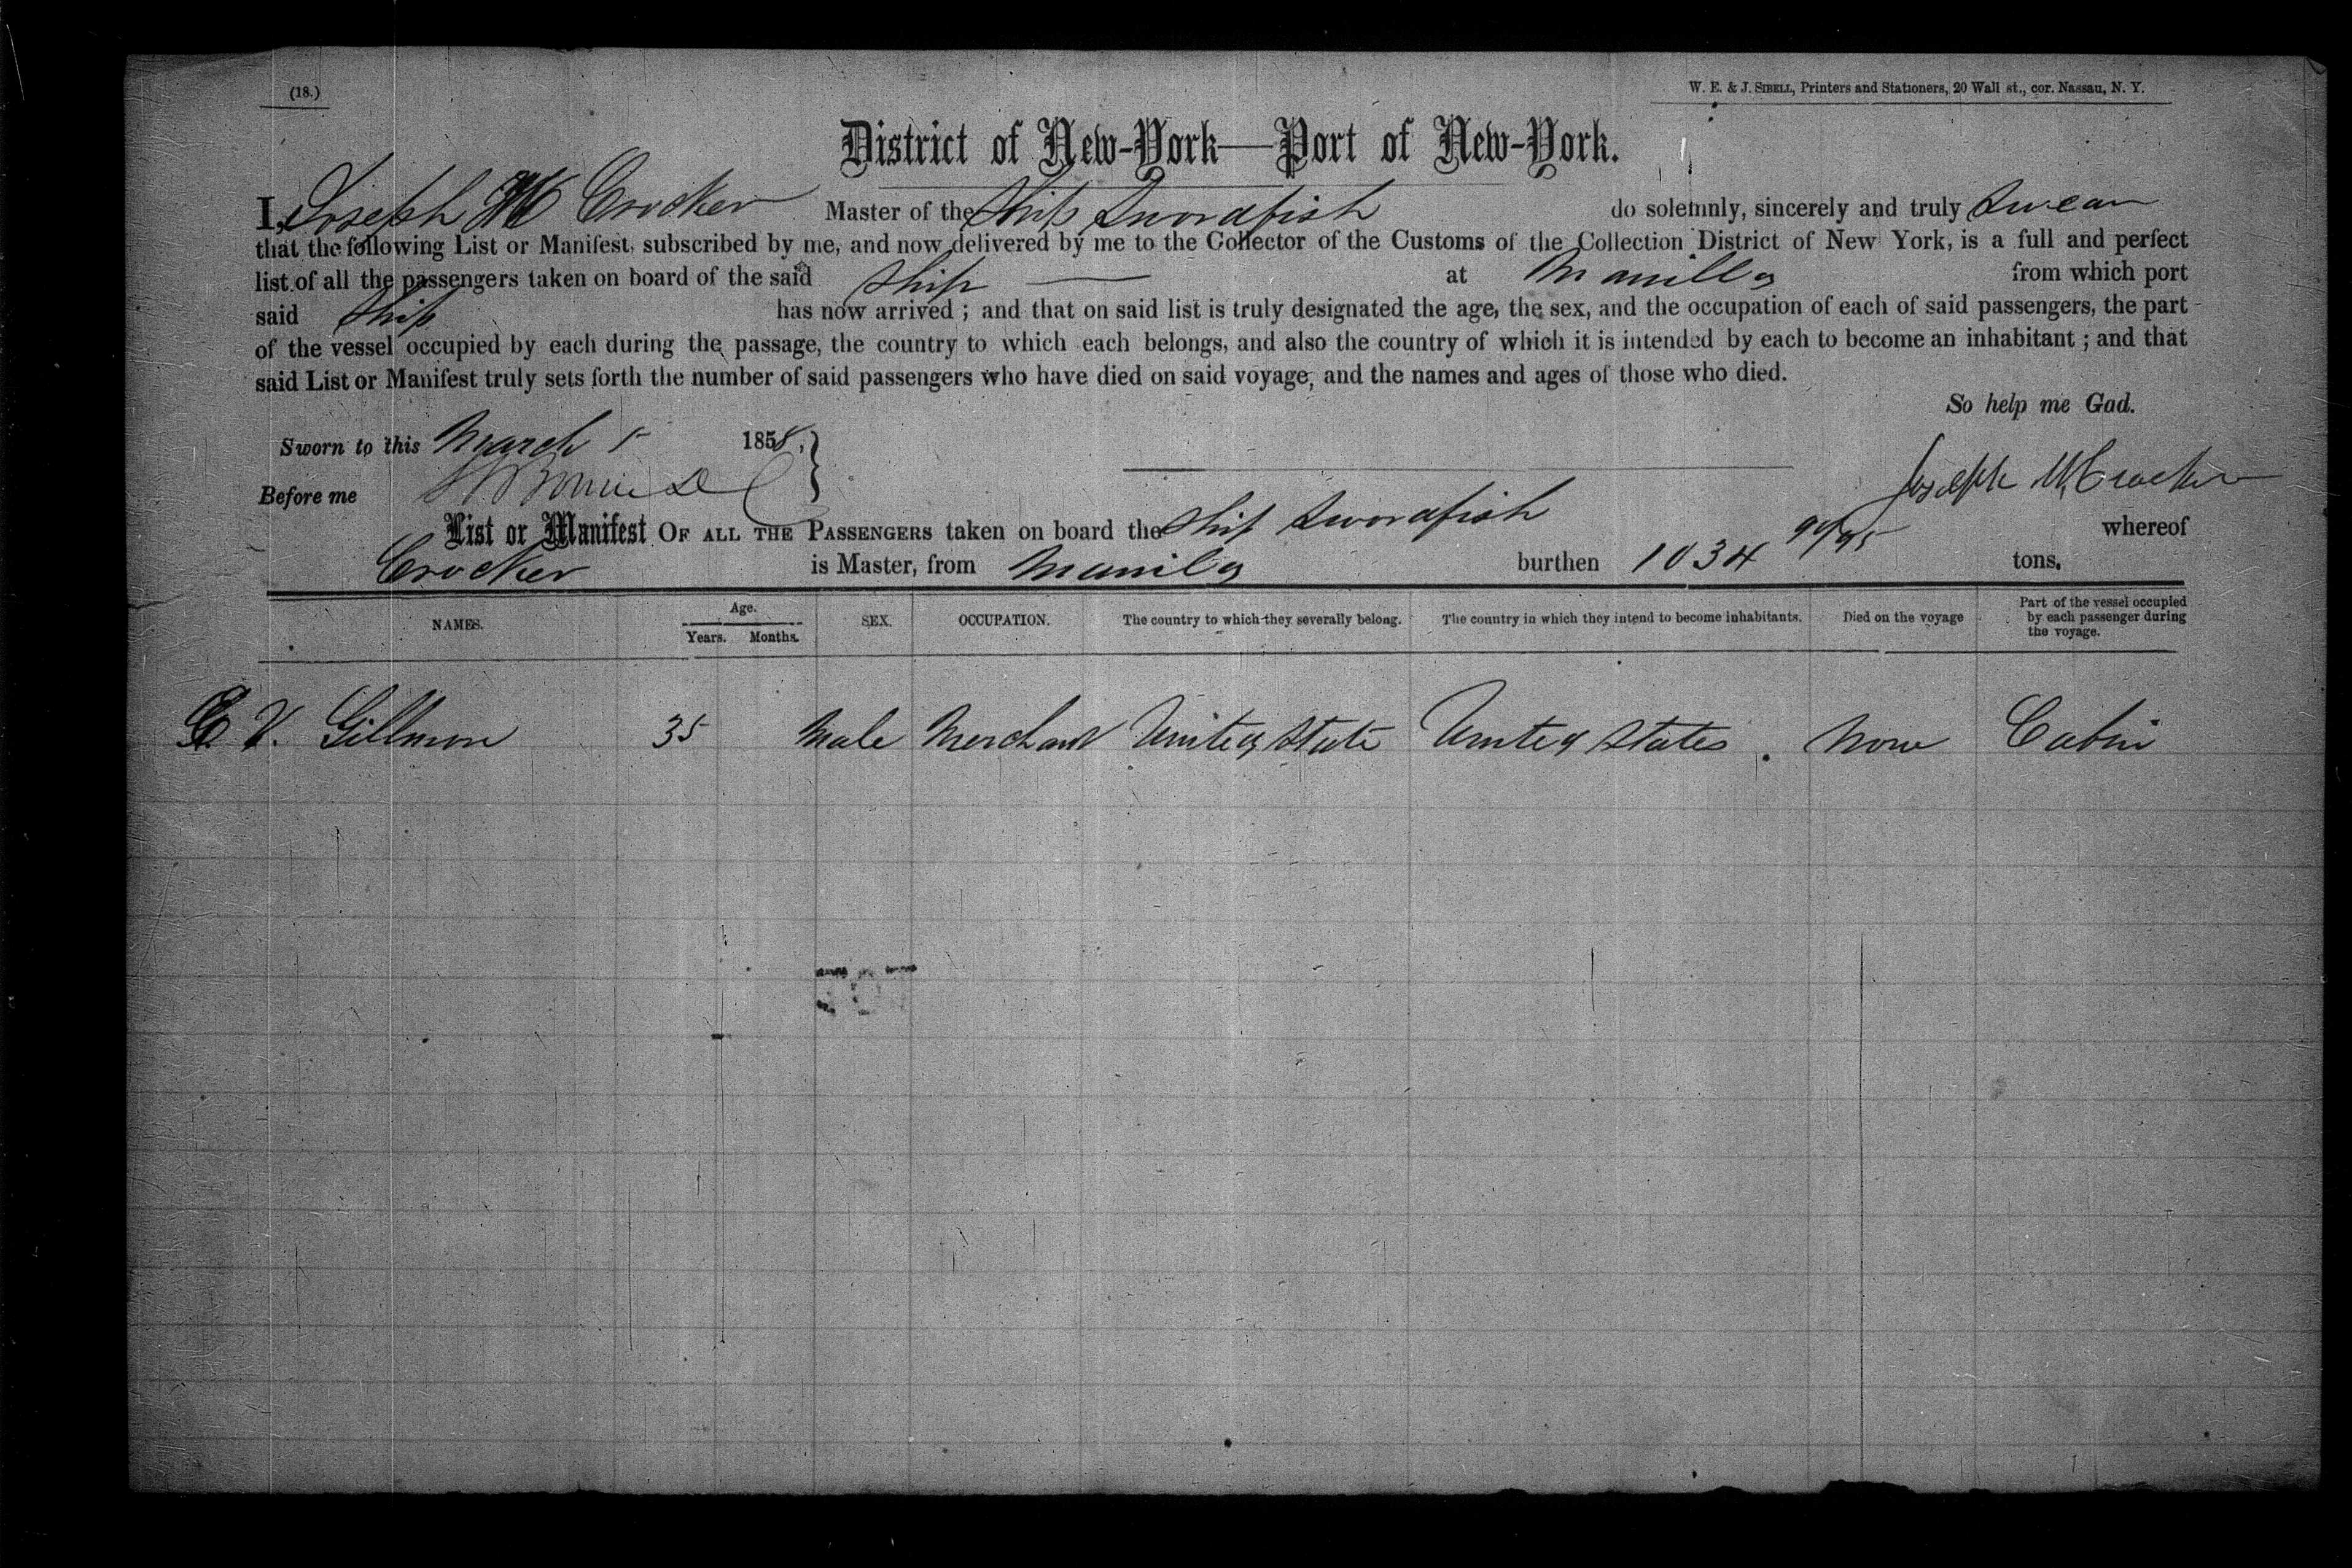 (18.)
W. E. & J. SIBELL, Printers and Stationers, 20 Wall st., cor. Nassau, N. Y.
District of New-York—Port of New-York.
I, Joseph W Crocker Master of the Ship Swordfish do solemnly, sincerely and truly Swear
that the following List or Manifest, subscribed by me, and now delivered by me to the Collector of the Customs of the Collection District of New York, is a full and perfect
list of all the passengers taken on board of the said Ship — at Manilla from which port
said Ship has now arrived ; and that on said list is truly designated the age, the sex, and the occupation of each of said passengers, the part
of the vessel occupied by each during the passage, the country to which each belongs, and also the country of which it is intended by each to become an inhabitant ; and that
said List or Manifest truly sets forth the number of said passengers who have died on said voyage, and the names and ages of those who died.
So help me God.
Sworn to this March 1858.
Before me
Joseph W Crocker
List or Manifest OF ALL THE PASSENGERS taken on board the Ship Swordfish whereof
Crocker is Master, from Manila burthen 1034 90/95 tons.
NAMES. Age. Years. Months. SEX. OCCUPATION. The country to which they severally belong. The country in which they intend to become inhabitants. Died on the voyage Part of the vessel occupied by each passenger during the voyage.
V. Gillmon 35 Male Merchant United State United States None Cabin